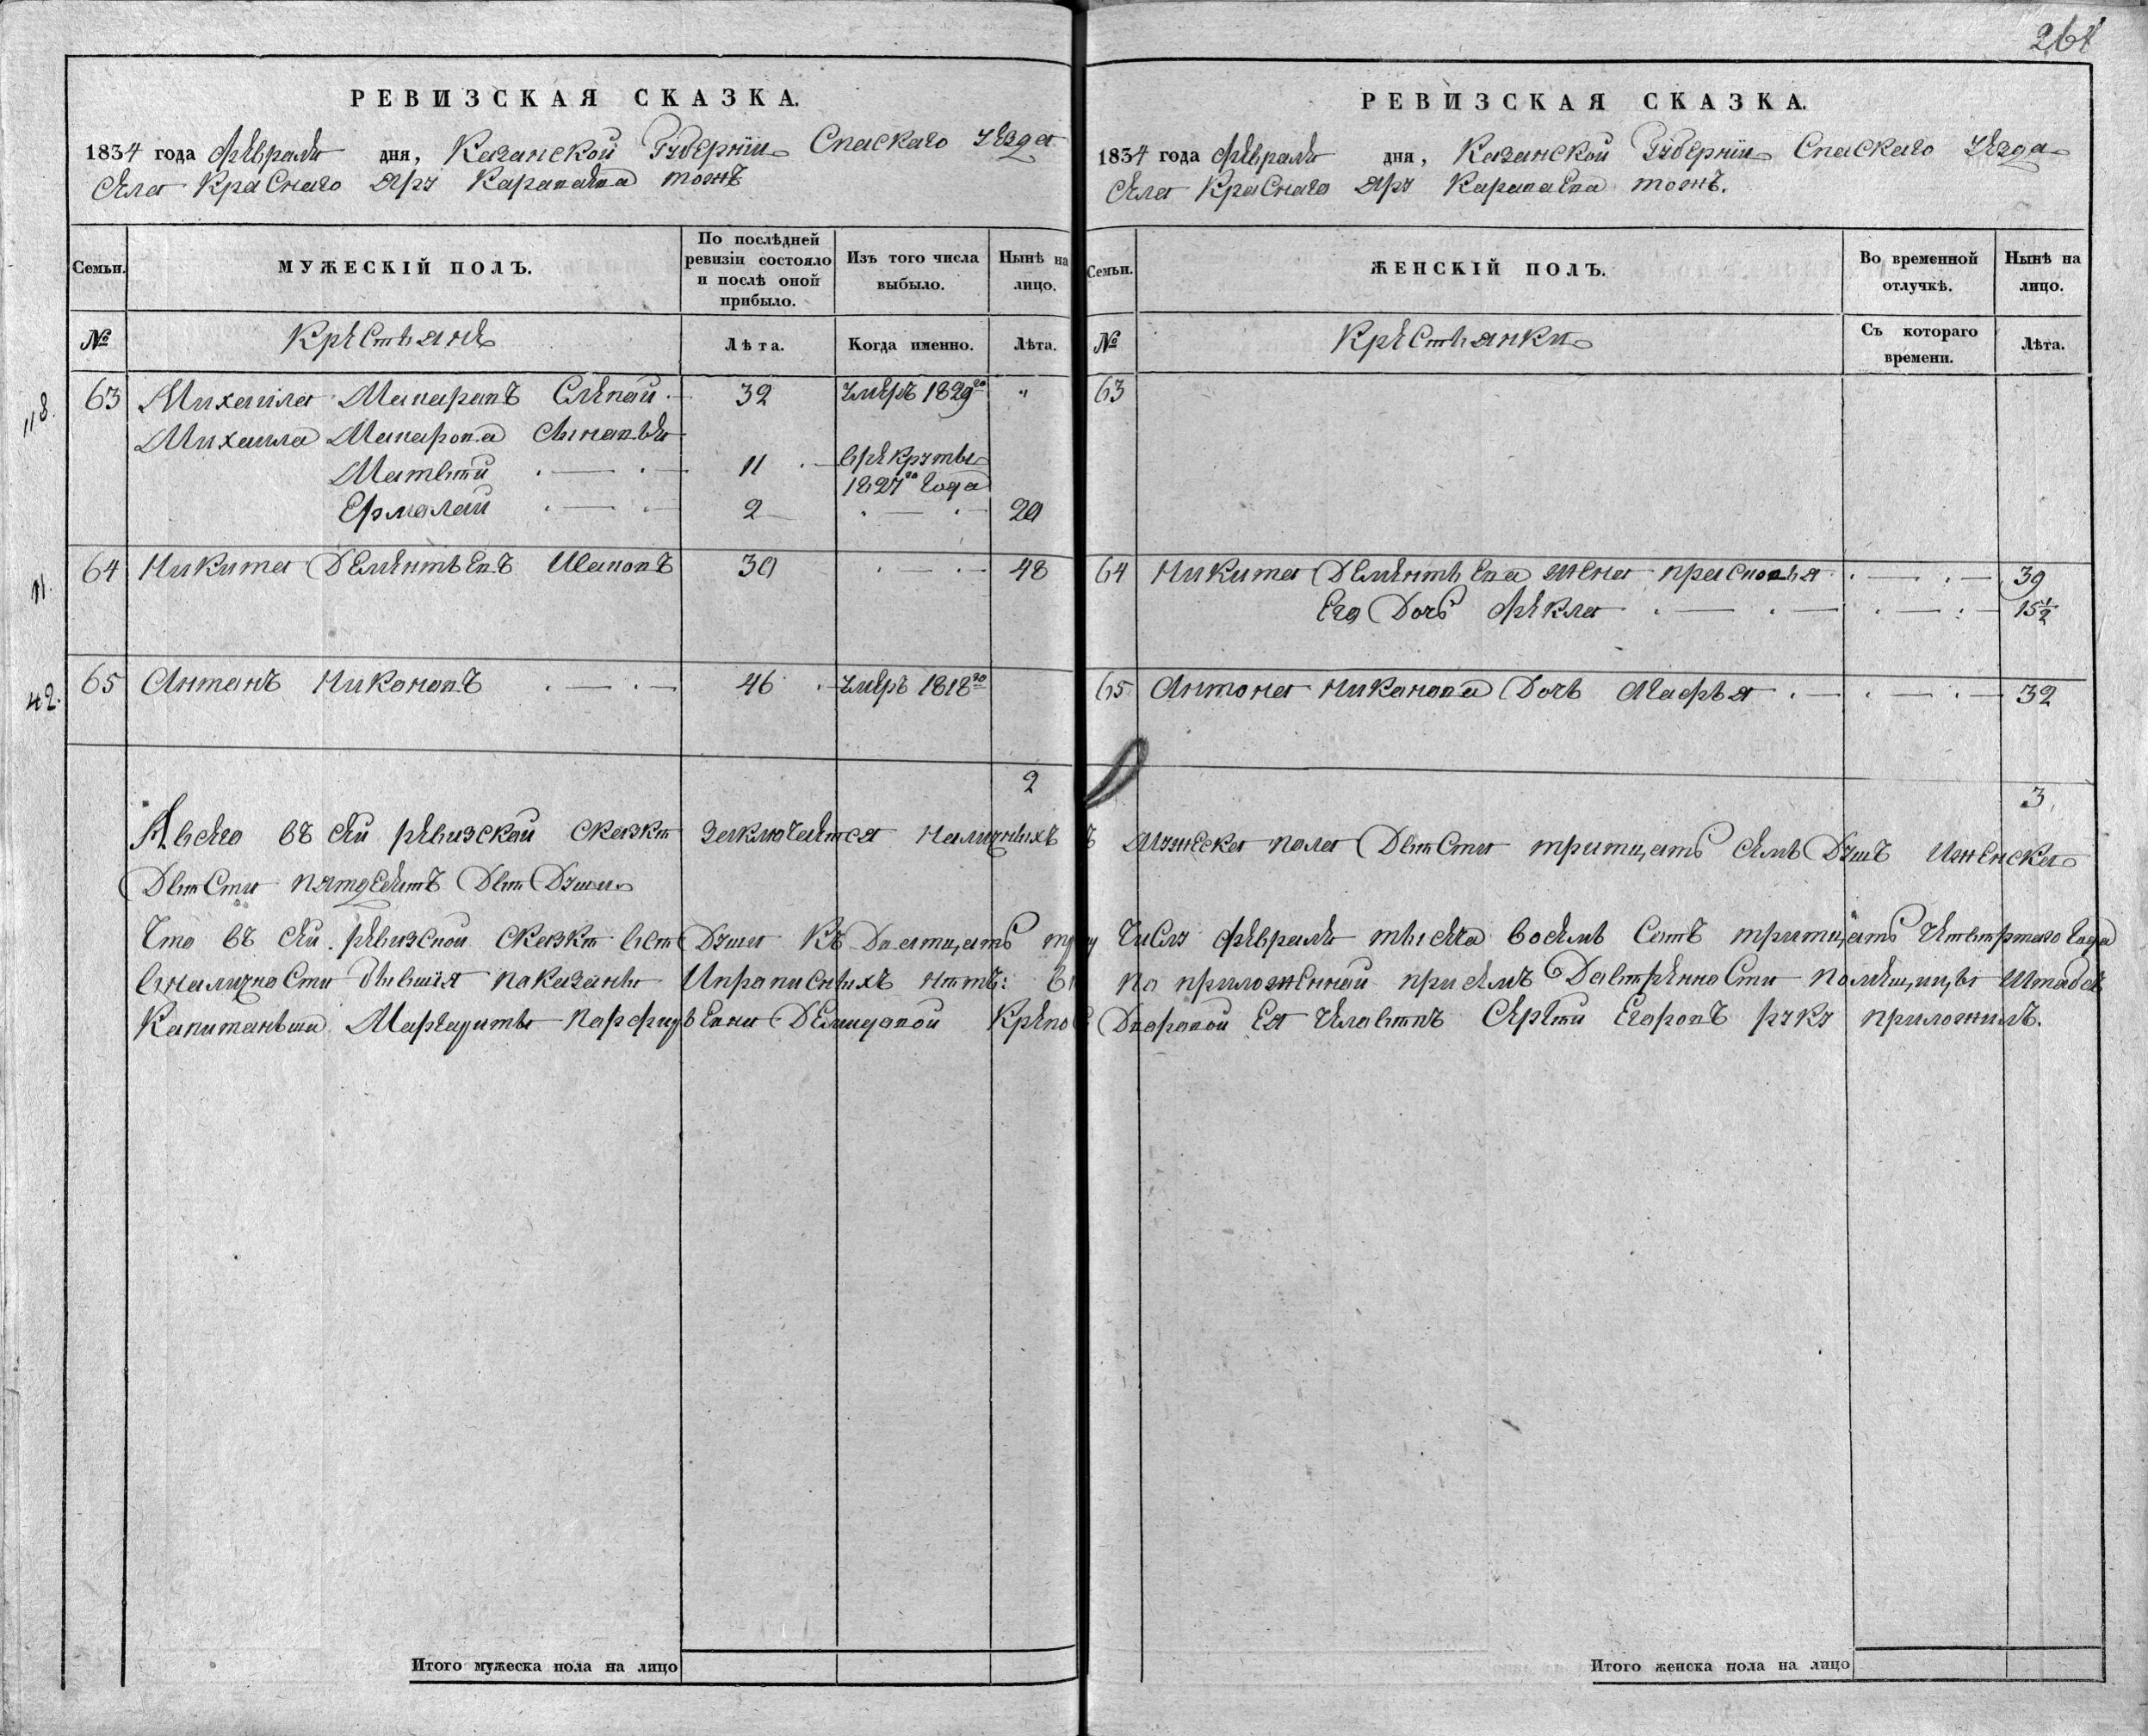 264
РЕВИЗСКАЯ СКАЗКА.
1834 года февраля дня, Казанской Губернiи Спаскаго уезда
села Краснаго Яру Карапаева тожъ
Семьи. МУЖЕСКІЙ ПОЛЪ. По послѣдней ревизіи состояло и послѣ оной прибыло. Изъ того числа выбыло. Нынѣ на лицо.
№ Крестьяне Лѣта. Когда именно. Лѣта.
118.
63 Михаила Макаровъ Слепой 32 умеръ 1829го "
Михаила Макарова сыновья
Матвѣй 11 в рекруты 1827го года
Ермолай 2 20
11.
64 Никита Дементьевъ Ивановъ 30 48
42.
65 Антонъ Никоновъ 46 умеръ 1818го
2
РЕВИЗСКАЯ СКАЗКА.
1834 года февраля дня, Казанской Губернiи Спаскаго уезда
села Краснаго Яру Карапаева тожъ.
Семьи. ЖЕНСКІЙ ПОЛЪ. Во временной отлучкѣ. Нынѣ на лицо.
№ Крестьянки Съ котораго времени. Лѣта.
63
64 Никита Дементьева жена Прасковья 39
Его дочь Фекла 15½
65 Антона Никонова дочь Агафья 32
3
А всего въ сей ревизской сказкѣ заключается наличныхъ мужеска пола двѣсти тритцать семь душъ и женска
двѣсти пятдесятъ двѣ души
Что въ сей ревизской сказкѣ всѣ души къ дватцать числу февраля тысяча восемь сотъ тритцать четвѣртаго года
в наличности бывшiя показаны и прописныхъ нѣтъ: в по приложенной при семъ довѣренности помещицы штабсъ
капитанши Маргариты Порфирьевны Демидовой крепо дворовой ея человѣкъ Сергѣй Егоровъ руку приложилъ.
Итого мужеска пола на лицо
Итого женска пола на лицо